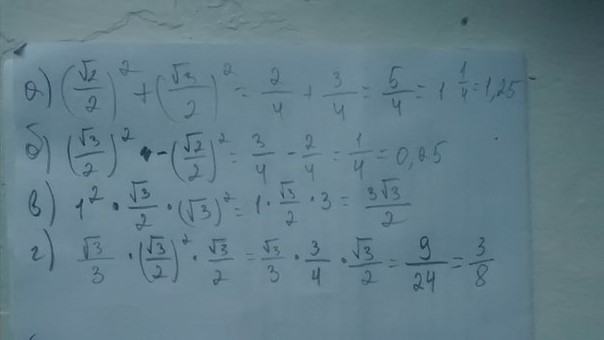 а) (√2/2)² + (√3/2)² = 2/4 + 3/4 = 5/4 = 1 1/4 = 1,25
б) (√3/2)² - (√2/2)² = 3/4 - 2/4 = 1/4 = 0,25
в) 1² · √3/2 · (√3)² = 1 · √3/2 · 3 = 3√3/2
г) √3/3 · (√3/2)² · √3/2 = √3/3 · 3/4 · √3/2 = 9/24 = 3/8